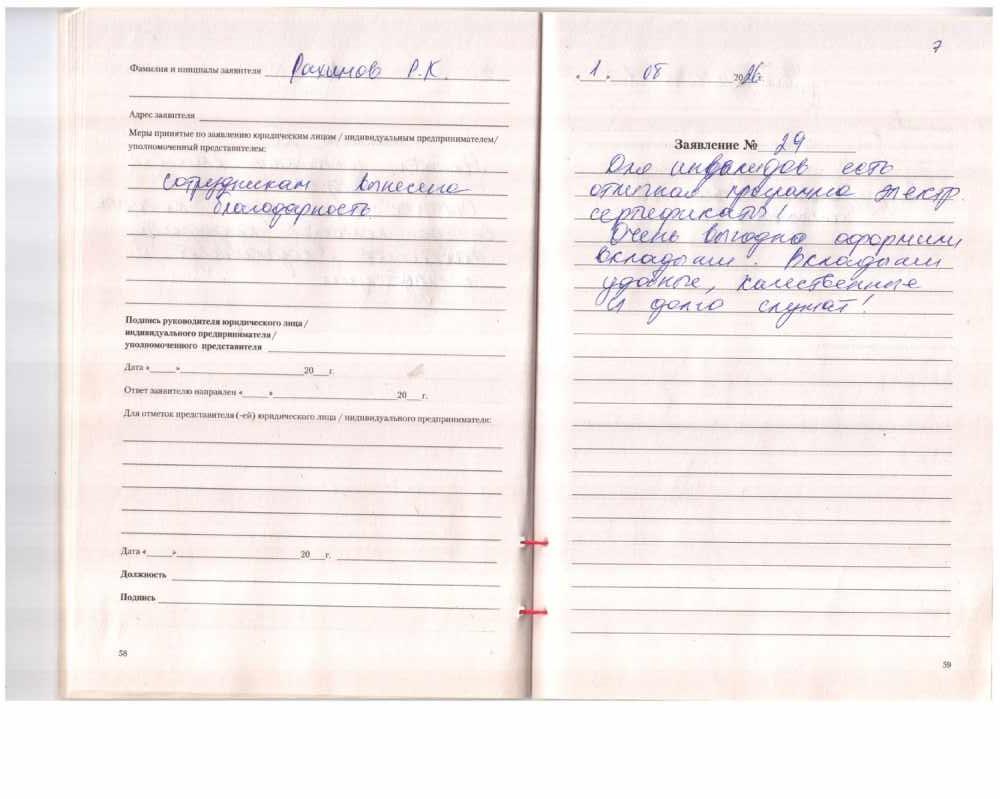 Фамилия и инициалы заявителе Рахимов Р.К.
Адрес заявителя
Меры принятые по заявлению юридическим лицом / индивидуальным предпринимателем/
уполномоченный представителем:
сотрудникам вынесена
благодарность
Подпись руководителя юридического лица /
индивидуального предпринимателя /
уполномоченного представителя
Дата «_____»____________________20___г.
Ответ заявителю направлен «_____»____________________20___г.
Для отметок представителя (-ей) юридического лица / индивидуального предпринимателя:
Дата «_____»____________________20___г.
Должность
Подпись
58
7
1. 08 2026г.
Заявление № 29
Для инвалидов есть
отличная программа электр.
сертификаты!
Очень выгодно оформили
вкладыши. Вкладыши
удобные, качественные
и долго служат!
59